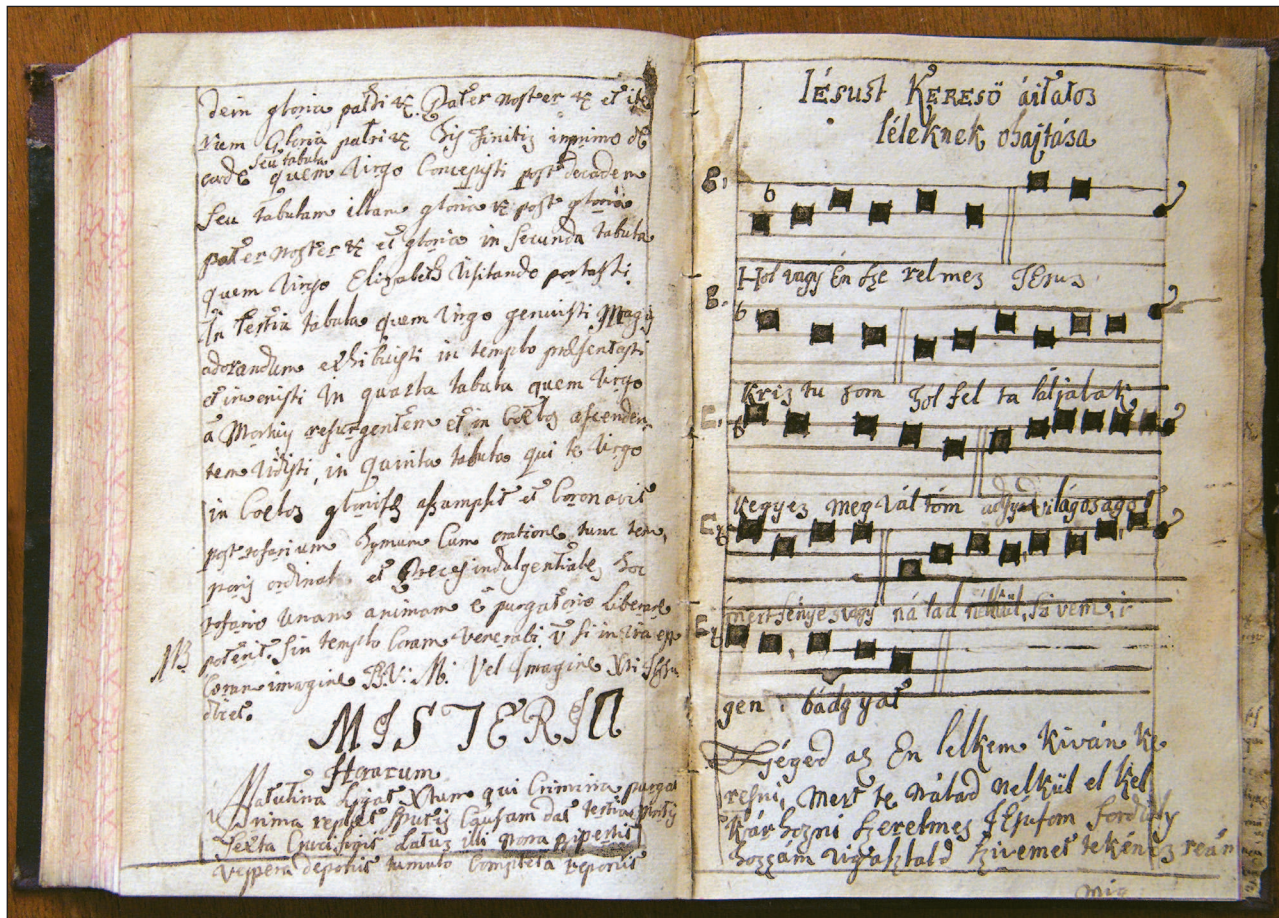 dem gloria patri &c. Pater noster &c et ite
rum Gloria patri &c His finitis in primo de
cade seu tabula quem Virgo Concepisti post decadem
seu tabulam illam gloria &c post gloria
pater noster &c et gloria in secunda tabula
quem Virgo Elizabeth Visitando portasti.
In tertia tabula quem Virgo genuisti Magis
adorandum exhibuisti in templo præsentasti
et invenisti In quarta tabula quem Virgo
a Mortuis resurgentem et in Coelos ascenden
tem Vidisti, in Quinta tabula qui te Virgo
in Coelos assumpsit et Coronavit
post rosarium Hymnum Cum oratione tunc tem
poris et Preces indulgentiales hoc
rosario Unam animam è purgatorio Liberare
NB poterit. si in templo Coram Venerabi
Coram imagine B.V.M. Vel Imagine Xti
dicet.
MISTERIA
Horarum
Matutina Ligat Xtum qui Crimina purgat
Prima replet Sputis Causam dat tertia Mortis
Sexta Crucifigit Latus illi Nona bipertit
Vespera deponit tumulo Completa reponit
IÉsust KERESÖ áitatos
léleknek ohajtása
Hol vagy Én sze relmes JEsus
Kris tu som hol fel ta láljalak
Kegyes megváltóm világoságot
mert fényes vagy ná lad nélkül, szívem, i
gen bádgyat
Téged az Én lelkem Kiván ke
resni, Mert te Nálad nelkül el kel
Kárhozni szerelmes JEsusom fordúly
hozzám vigasztald szivemet tekénts reám